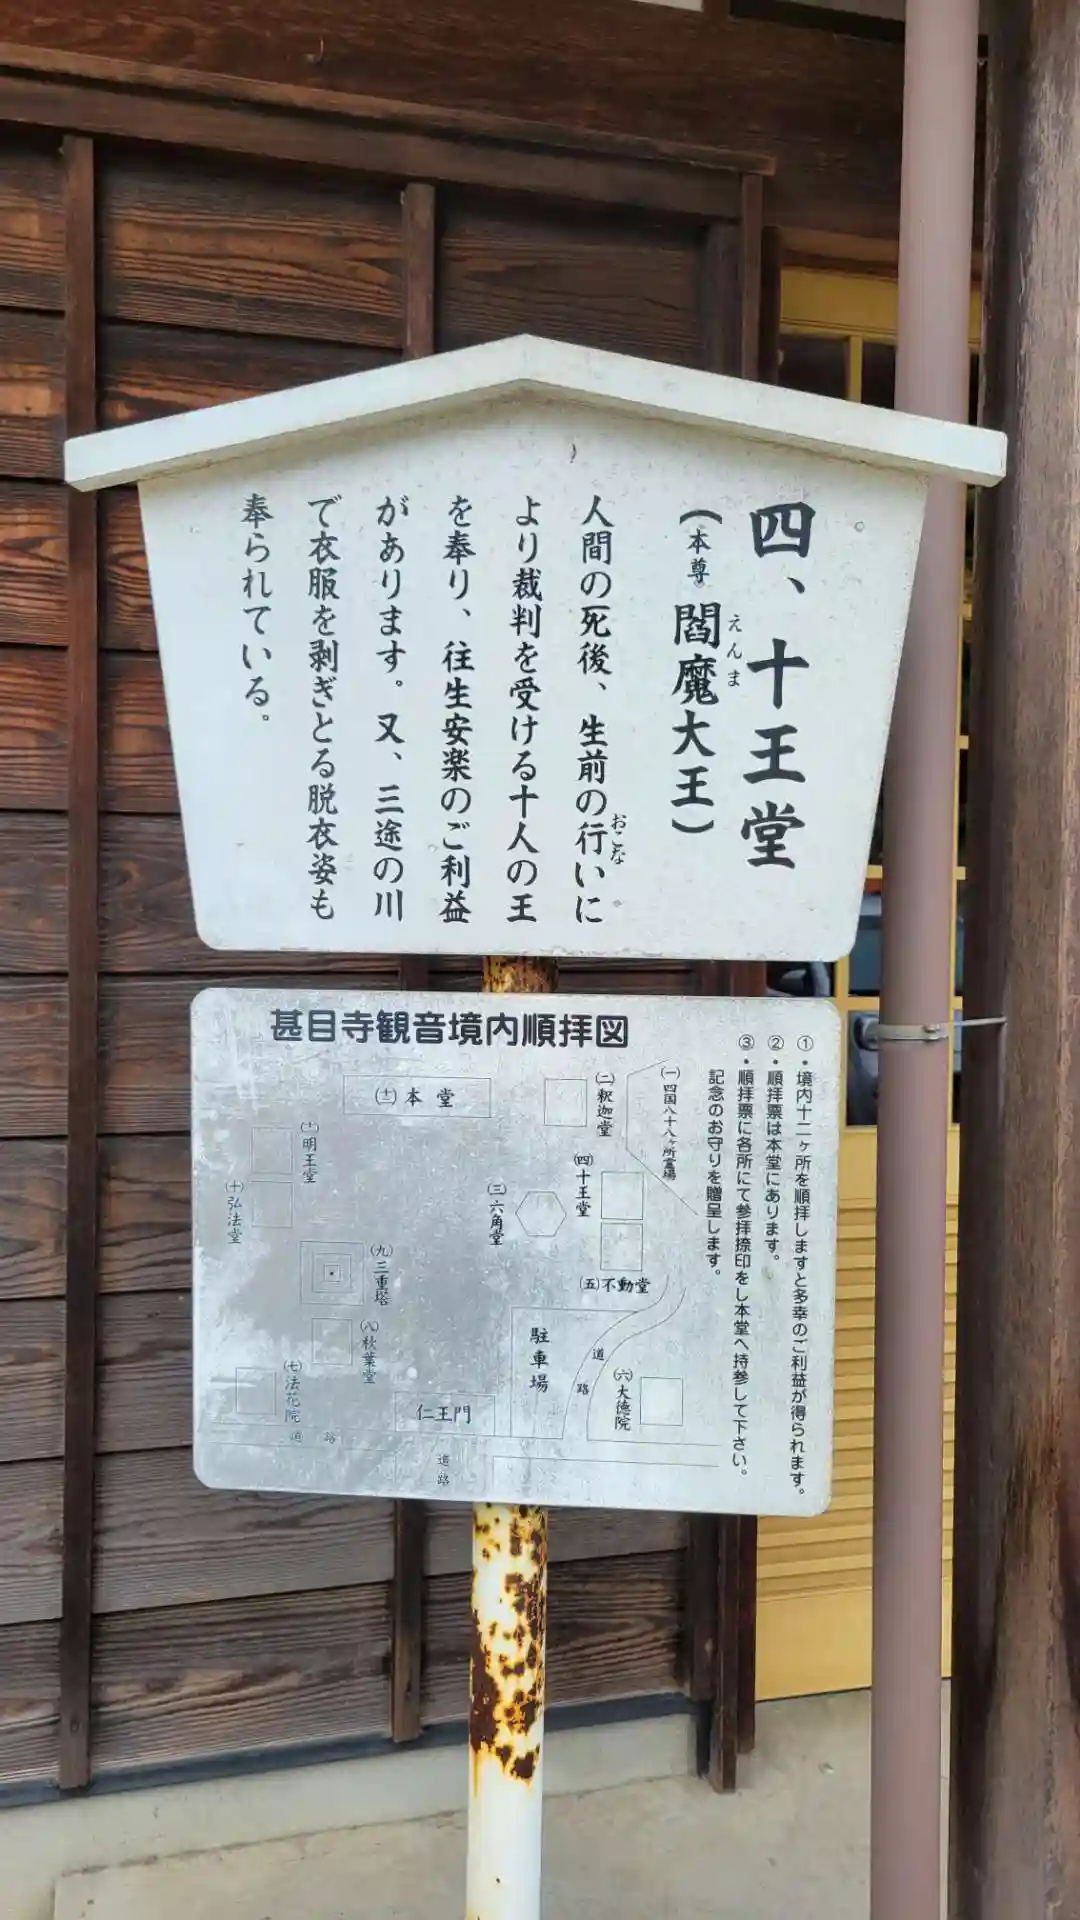 四、十王堂
（本尊 閻魔大王）
えんま
人間の死後、生前の行いに
おこな
より裁判を受ける十人の王
を奉り、往生安楽のご利益
があります。又、三途の川
で衣服を剥ぎとる脱衣姿も
奉られている。
甚目寺観音境内順拝図
①・境内十二ヶ所を順拝しますと多幸のご利益が得られます。
②・順拝票は本堂にあります。
③・順拝票に各所にて参拝捺印をし本堂へ持参して下さい。
記念のお守りを贈呈します。
㈠四国八十八ヶ所霊場
㈡釈迦堂
(十二)本堂
㈣十王堂
㈢六角堂
(十一)明王堂
㈩弘法堂
㈤不動堂
㈨三重塔
㈧秋葉堂
駐車場
道路
㈥大徳院
㈦法花院
仁王門
道路
道路